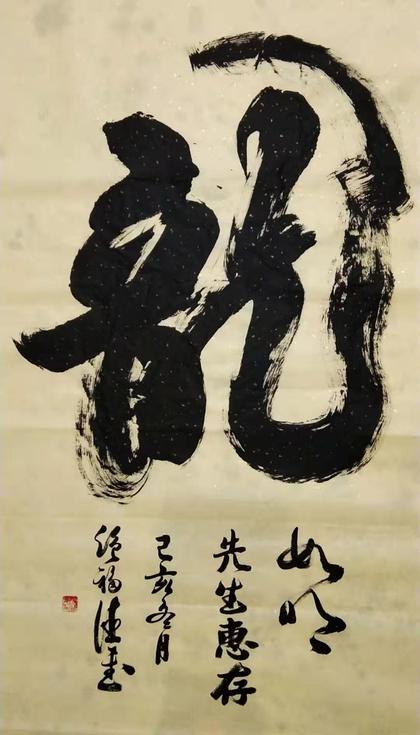 龍
如明
先生惠存
己亥冬月
福德書